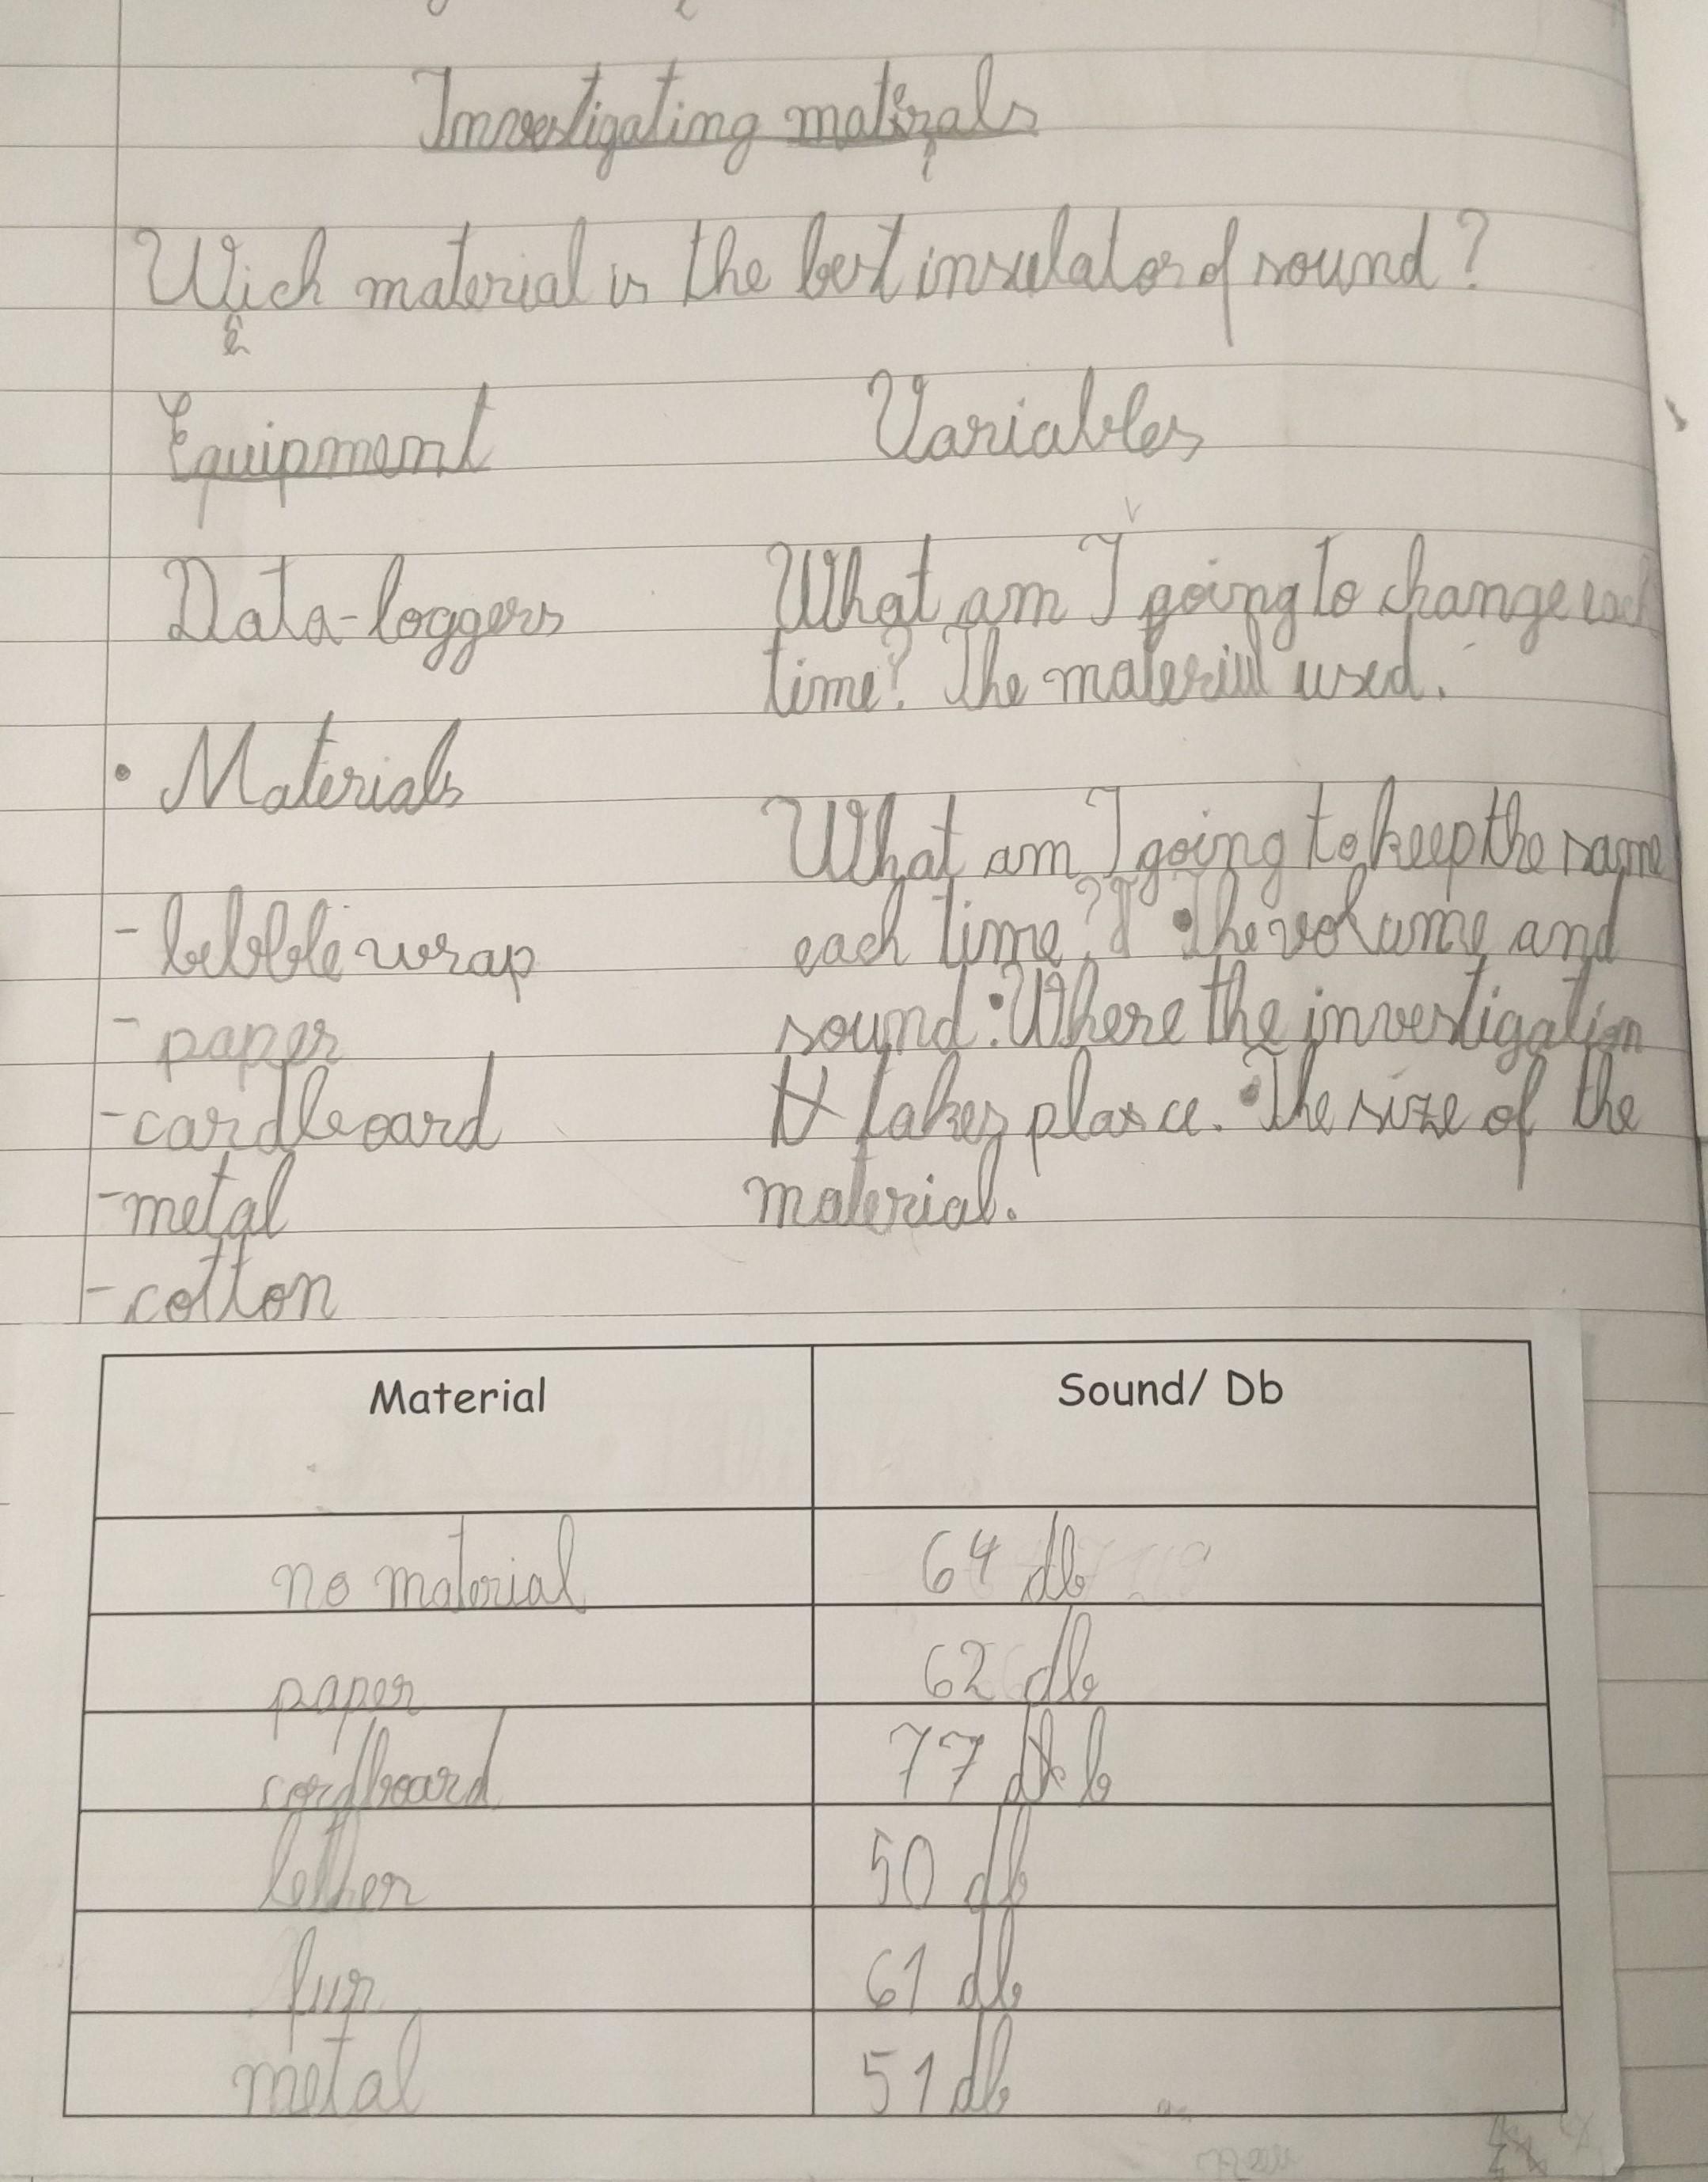 Investigating matirals
Wich material is the best insulator of sound?
Equipment
Variables
Data-loggers
What am I going to change each
time? The material used.
• Materials
What am I going to keep the same
each time? • The volume and
sound • Where the investigation
takes place. • The size of the
material.
- bebble wrap
- paper
- cardboard
- metal
- cotton
Material Sound/ Db
no material 64 db
paper 62 db
cardboard 77 db
lether 50 db
fur 61 db
metal 51 db